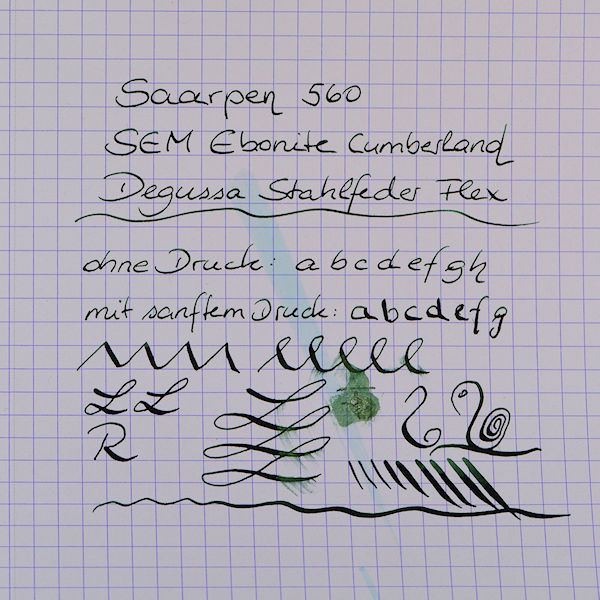 Saarpen 560
SEM Ebonite Cumberland
Degussa Stahlfeder Flex
ohne Druck: a b c d e f g h
mit sanftem Druck: a b c d e f g
L L
R